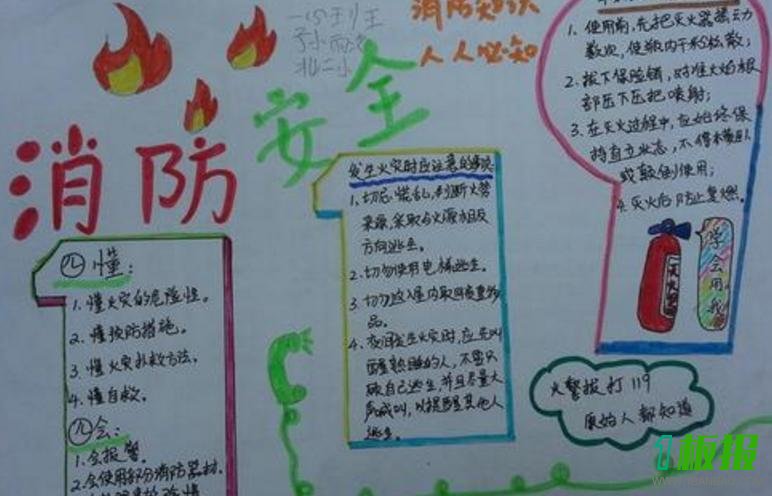 消防安全
消防知识
人人必知
四懂:
1.懂火灾的危险性。
2.懂预防措施。
3.懂火灾扑救方法。
4.懂自救。
四会:
1.会报警。
2.会使用部分消防器材。
发生火灾时应注意的事项
1.切忌慌乱,判断火势
来源,采取与火源相反
方向逃生。
2.切勿使用电梯逃生。
3.切勿返入屋内取回贵重物
品。
4.夜间发生火灾时,应先叫
醒熟睡的人,不要只
顾自己逃生,并且尽量大
声喊叫,以提醒其他人
逃生。
1.使用前,先把灭火器摇动
数次,使瓶内干粉松散;
2.拔下保险销,对准火焰根
部压下压把喷射;
3.在灭火过程中,应始终保
持直立状态,不得横卧
或颠倒使用;
4.灭火后防止复燃。
灭火器
学会用我
火警拨打119
原始人都知道
1板报
WWW.1BANBAO.COM